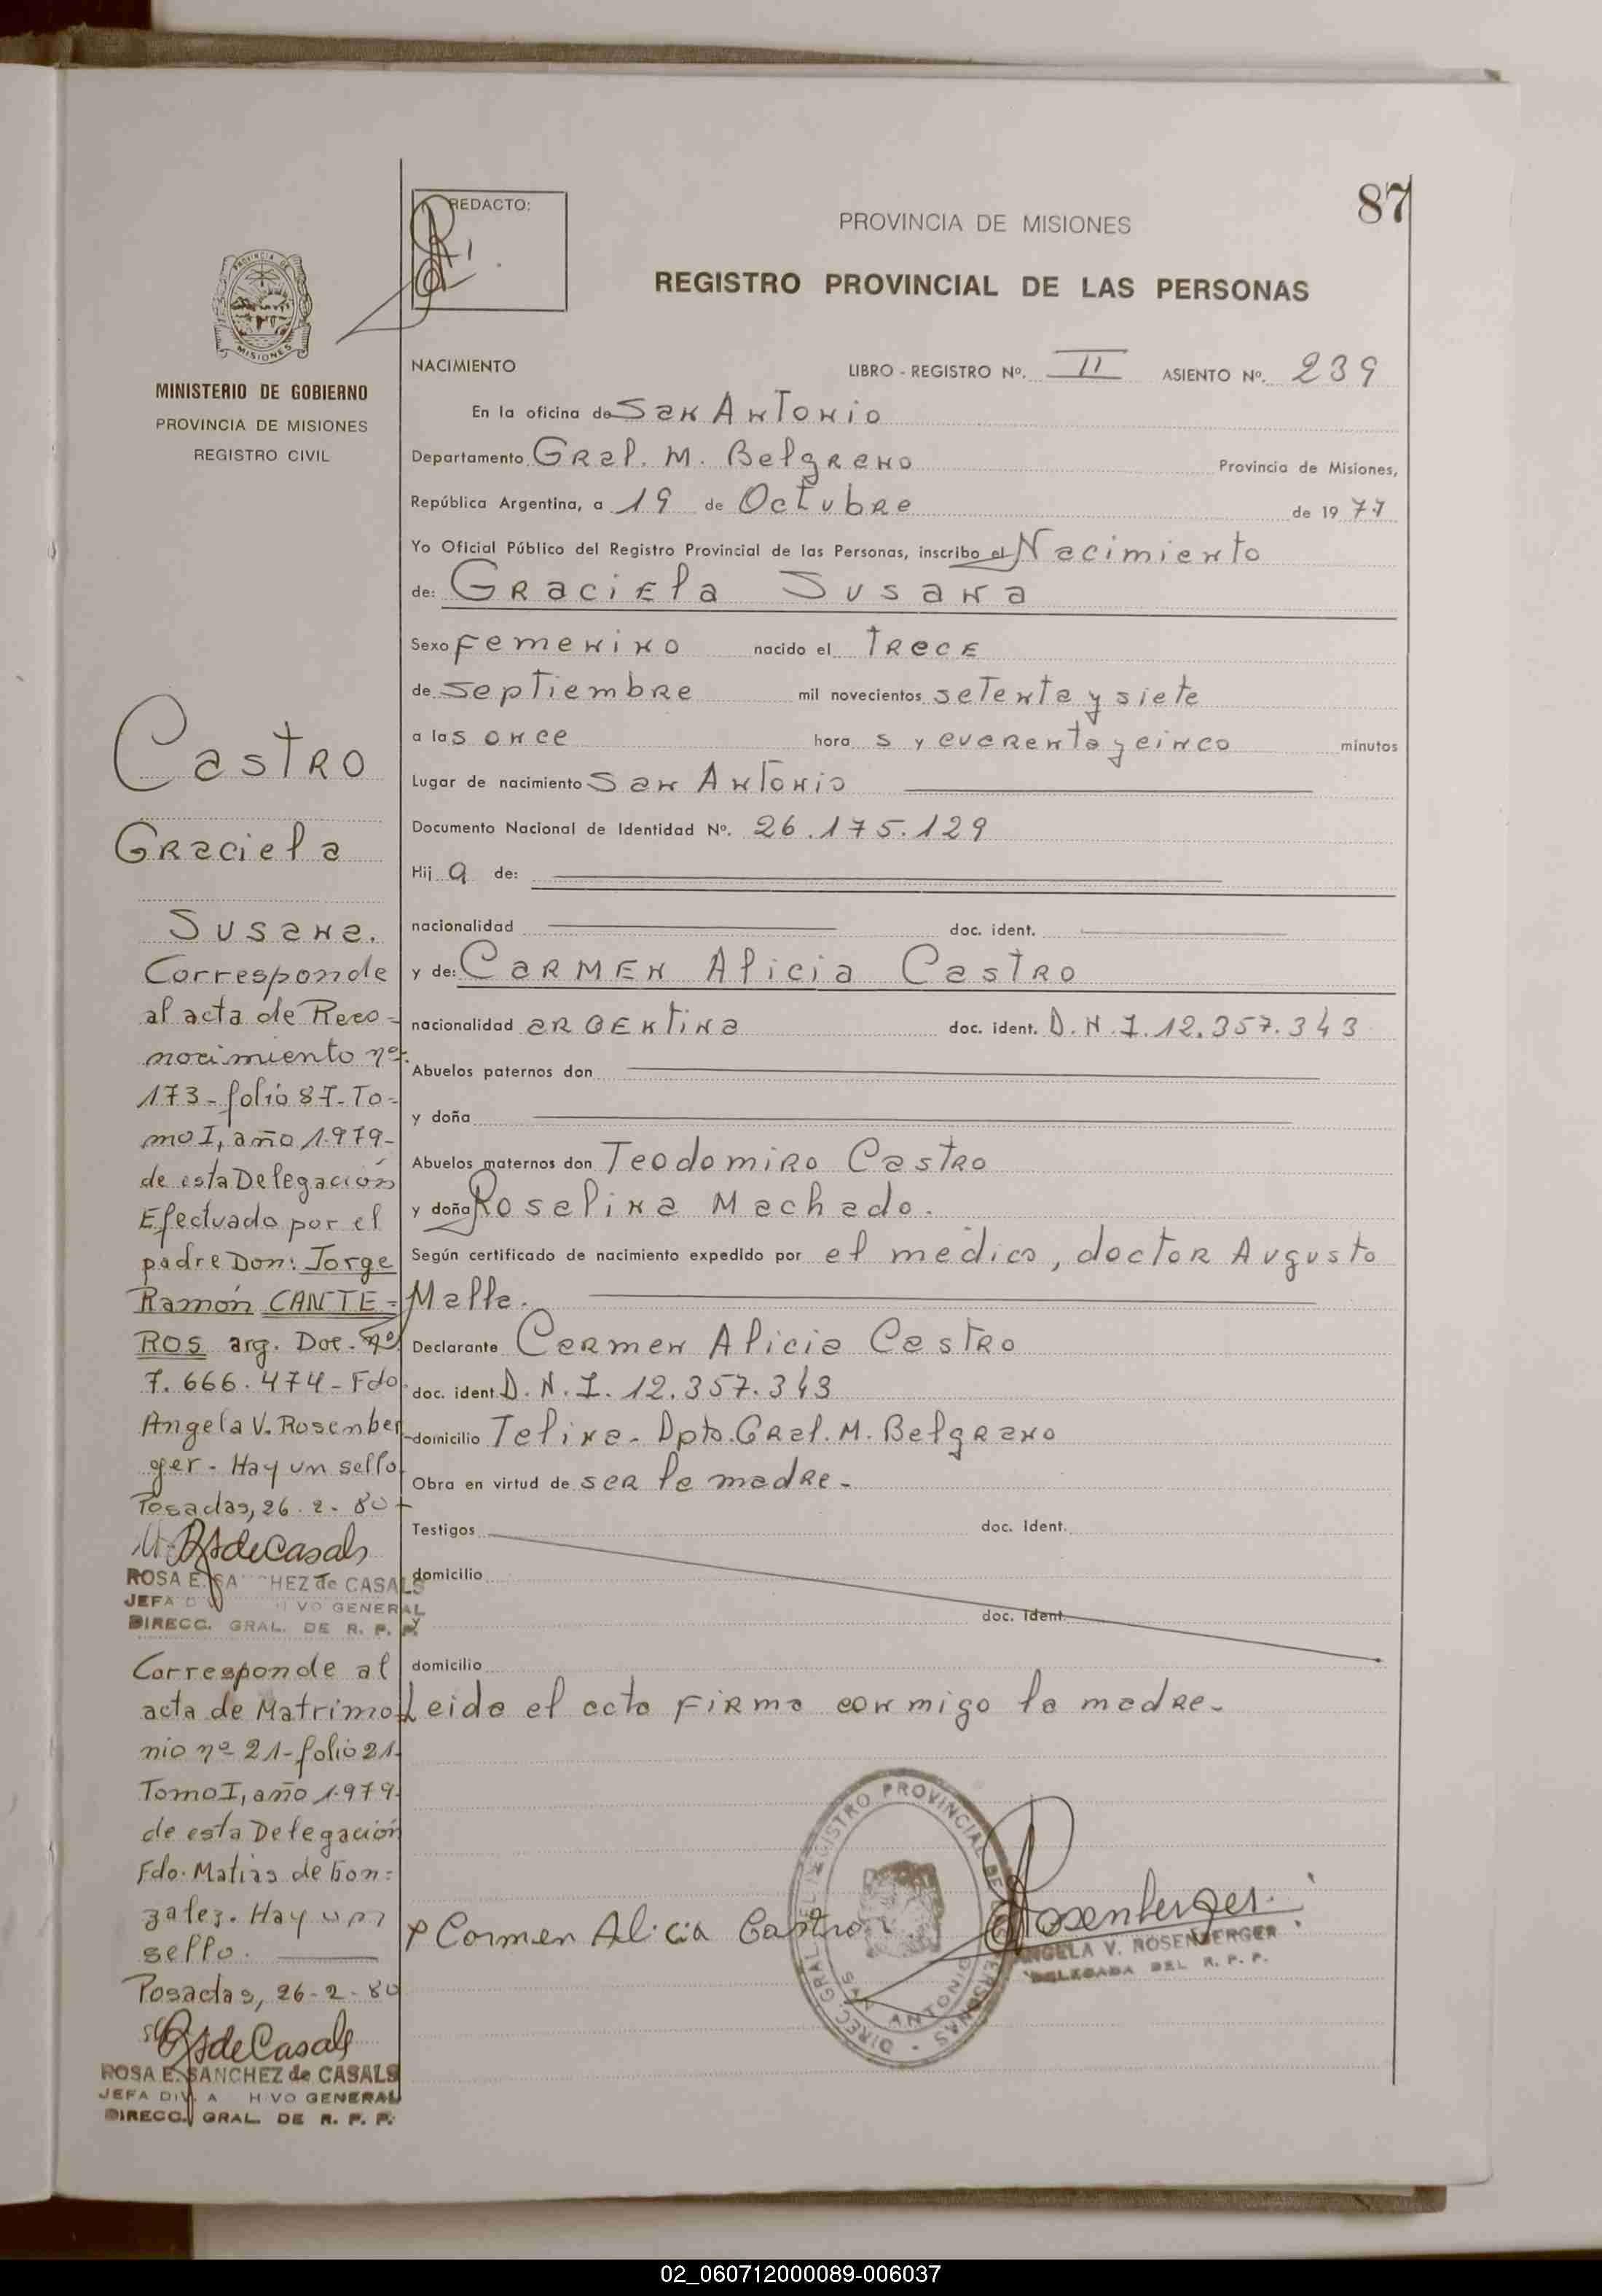 87
REDACTO:
PROVINCIA DE MISIONES
REGISTRO PROVINCIAL DE LAS PERSONAS
PROVINCIA DE
MISIONES
MINISTERIO DE GOBIERNO
PROVINCIA DE MISIONES
REGISTRO CIVIL
NACIMIENTO LIBRO - REGISTRO Nº. II ASIENTO Nº. 239
En la oficina de San Antonio
Departamento Gral. M. Belgrano Provincia de Misiones,
República Argentina, a 19 de Octubre de 1977
Yo Oficial Público del Registro Provincial de las Personas, inscribo el Nacimiento
de: Graciela Susana
Sexo femenino nacido el trece
de septiembre mil novecientos setenta y siete
a las once hora s y cuarenta y cinco minutos
Lugar de nacimiento San Antonio
Documento Nacional de Identidad Nº. 26.175.129
Hij a de:
nacionalidad doc. ident.
y de: Carmen Alicia Castro
nacionalidad argentina doc. ident. D.N.I. 12.357.343
Abuelos paternos don
y doña
Abuelos maternos don Teodomiro Castro
y doña Rosalina Machado.
Según certificado de nacimiento expedido por el médico, doctor Augusto
Malla.
Declarante Carmen Alicia Castro
doc. ident. D.N.I. 12.357.343
domicilio Telina - Dpto. Gral. M. Belgrano
Obra en virtud de ser la madre -
Testigos doc. Ident.
domicilio
y doc. Ident.
domicilio
Leida el acta firma conmigo la madre -
x Carmen Alicia Castro
Rosenberger
ANGELA V. ROSENBERGER
DELEGADA DEL R. P. P.
DIREC. GRAL. DEL REGISTRO PROVINCIAL DE PERSONAS
SAN ANTONIO
Castro
Graciela
Susana.
Corresponde
al acta de Reco-
nocimiento nº
173 - folio 87 - To-
mo I, año 1.979-
de esta Delegación
Efectuado por el
padre Don: Jorge
Ramón CANTE=
ROS arg. Doc. nº
7.666.474 - Fdo.
Angela V. Rosenber
ger - Hay un sello.
Posadas, 26.2.80
RSdeCasals
ROSA E. SANCHEZ de CASALS
JEFA DIV. ARCHIVO GENERAL
DIRECC. GRAL. DE R. P. P.
Corresponde al
acta de Matrimo
nio nº 21 - folio 21-
Tomo I, año 1.979.
de esta Delegación
Fdo. Matias de Gon=
zalez. Hay un
sello.
Posadas, 26-2-80
RSdeCasals
ROSA E. SANCHEZ de CASALS
JEFA DIV. A HIVO GENERAL
DIRECC. GRAL. DE R. P. P.
02_060712000089-006037